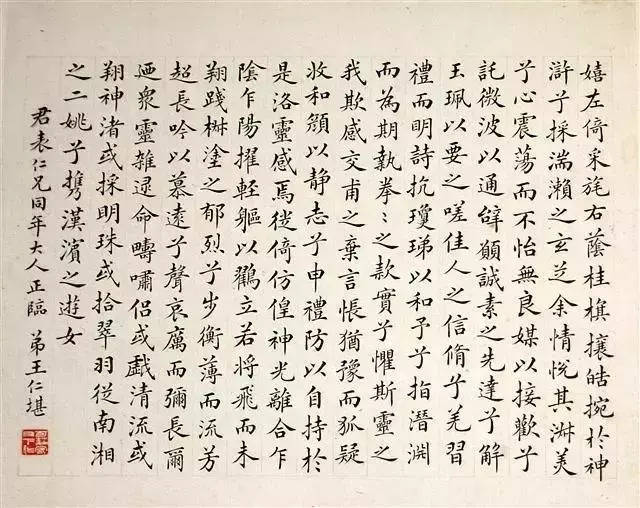 嬉左倚采旄右蔭桂旗攘皓捥於神
滸兮採湍瀨之玄芝余情悅其淑美
兮心震蕩而不怡無良媒以接歡兮
託微波以通辭願誠素之先達兮解
玉珮以要之嗟佳人之信脩兮羌習
禮而明詩抗瓊珶以和予兮指潛淵
而為期執拳〻之款實兮懼斯靈之
我欺感交甫之棄言悵猶豫而狐疑
收和顏以靜志兮申禮防以自持於
是洛靈感焉徙倚仿偟神光離合乍
陰乍陽擢輕軀以鸖立若將飛而未
翔踐椒塗之郁烈兮步衡薄而流芳
超長吟以慕遠兮聲哀厲而彌長爾
迺眾靈雜遝命疇嘯侶或戲清流或
翔神渚或採明珠或拾翠羽從南湘
之二姚兮攜漢濱之遊女
君表仁兄同年大人正臨 弟王仁堪